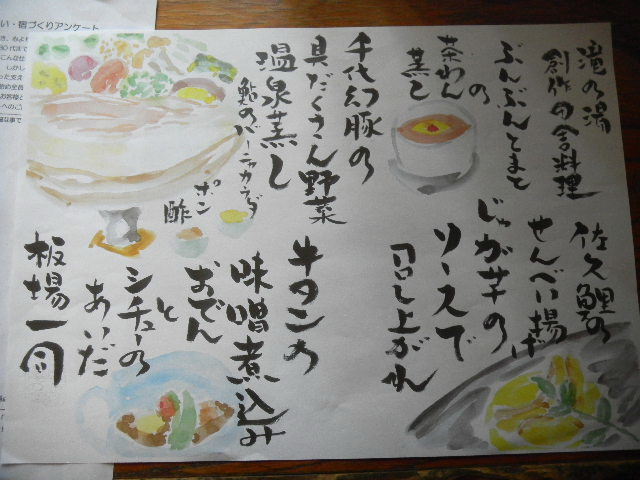 滝の湯
創作田舎料理
ぶんぶんとまと
の
茶わん
蒸し
千代幻豚の
具だくさん野菜
温泉蒸し
鮎のバーニャカウダ
ポン
酢
佐久鯉の
せんべい揚げ
じゃが芋の
ソースで
召し上がれ
牛タンの
味噌煮込み
おでん
と
シチューの
あいだ
板場一同
い・宿づくりアンケート